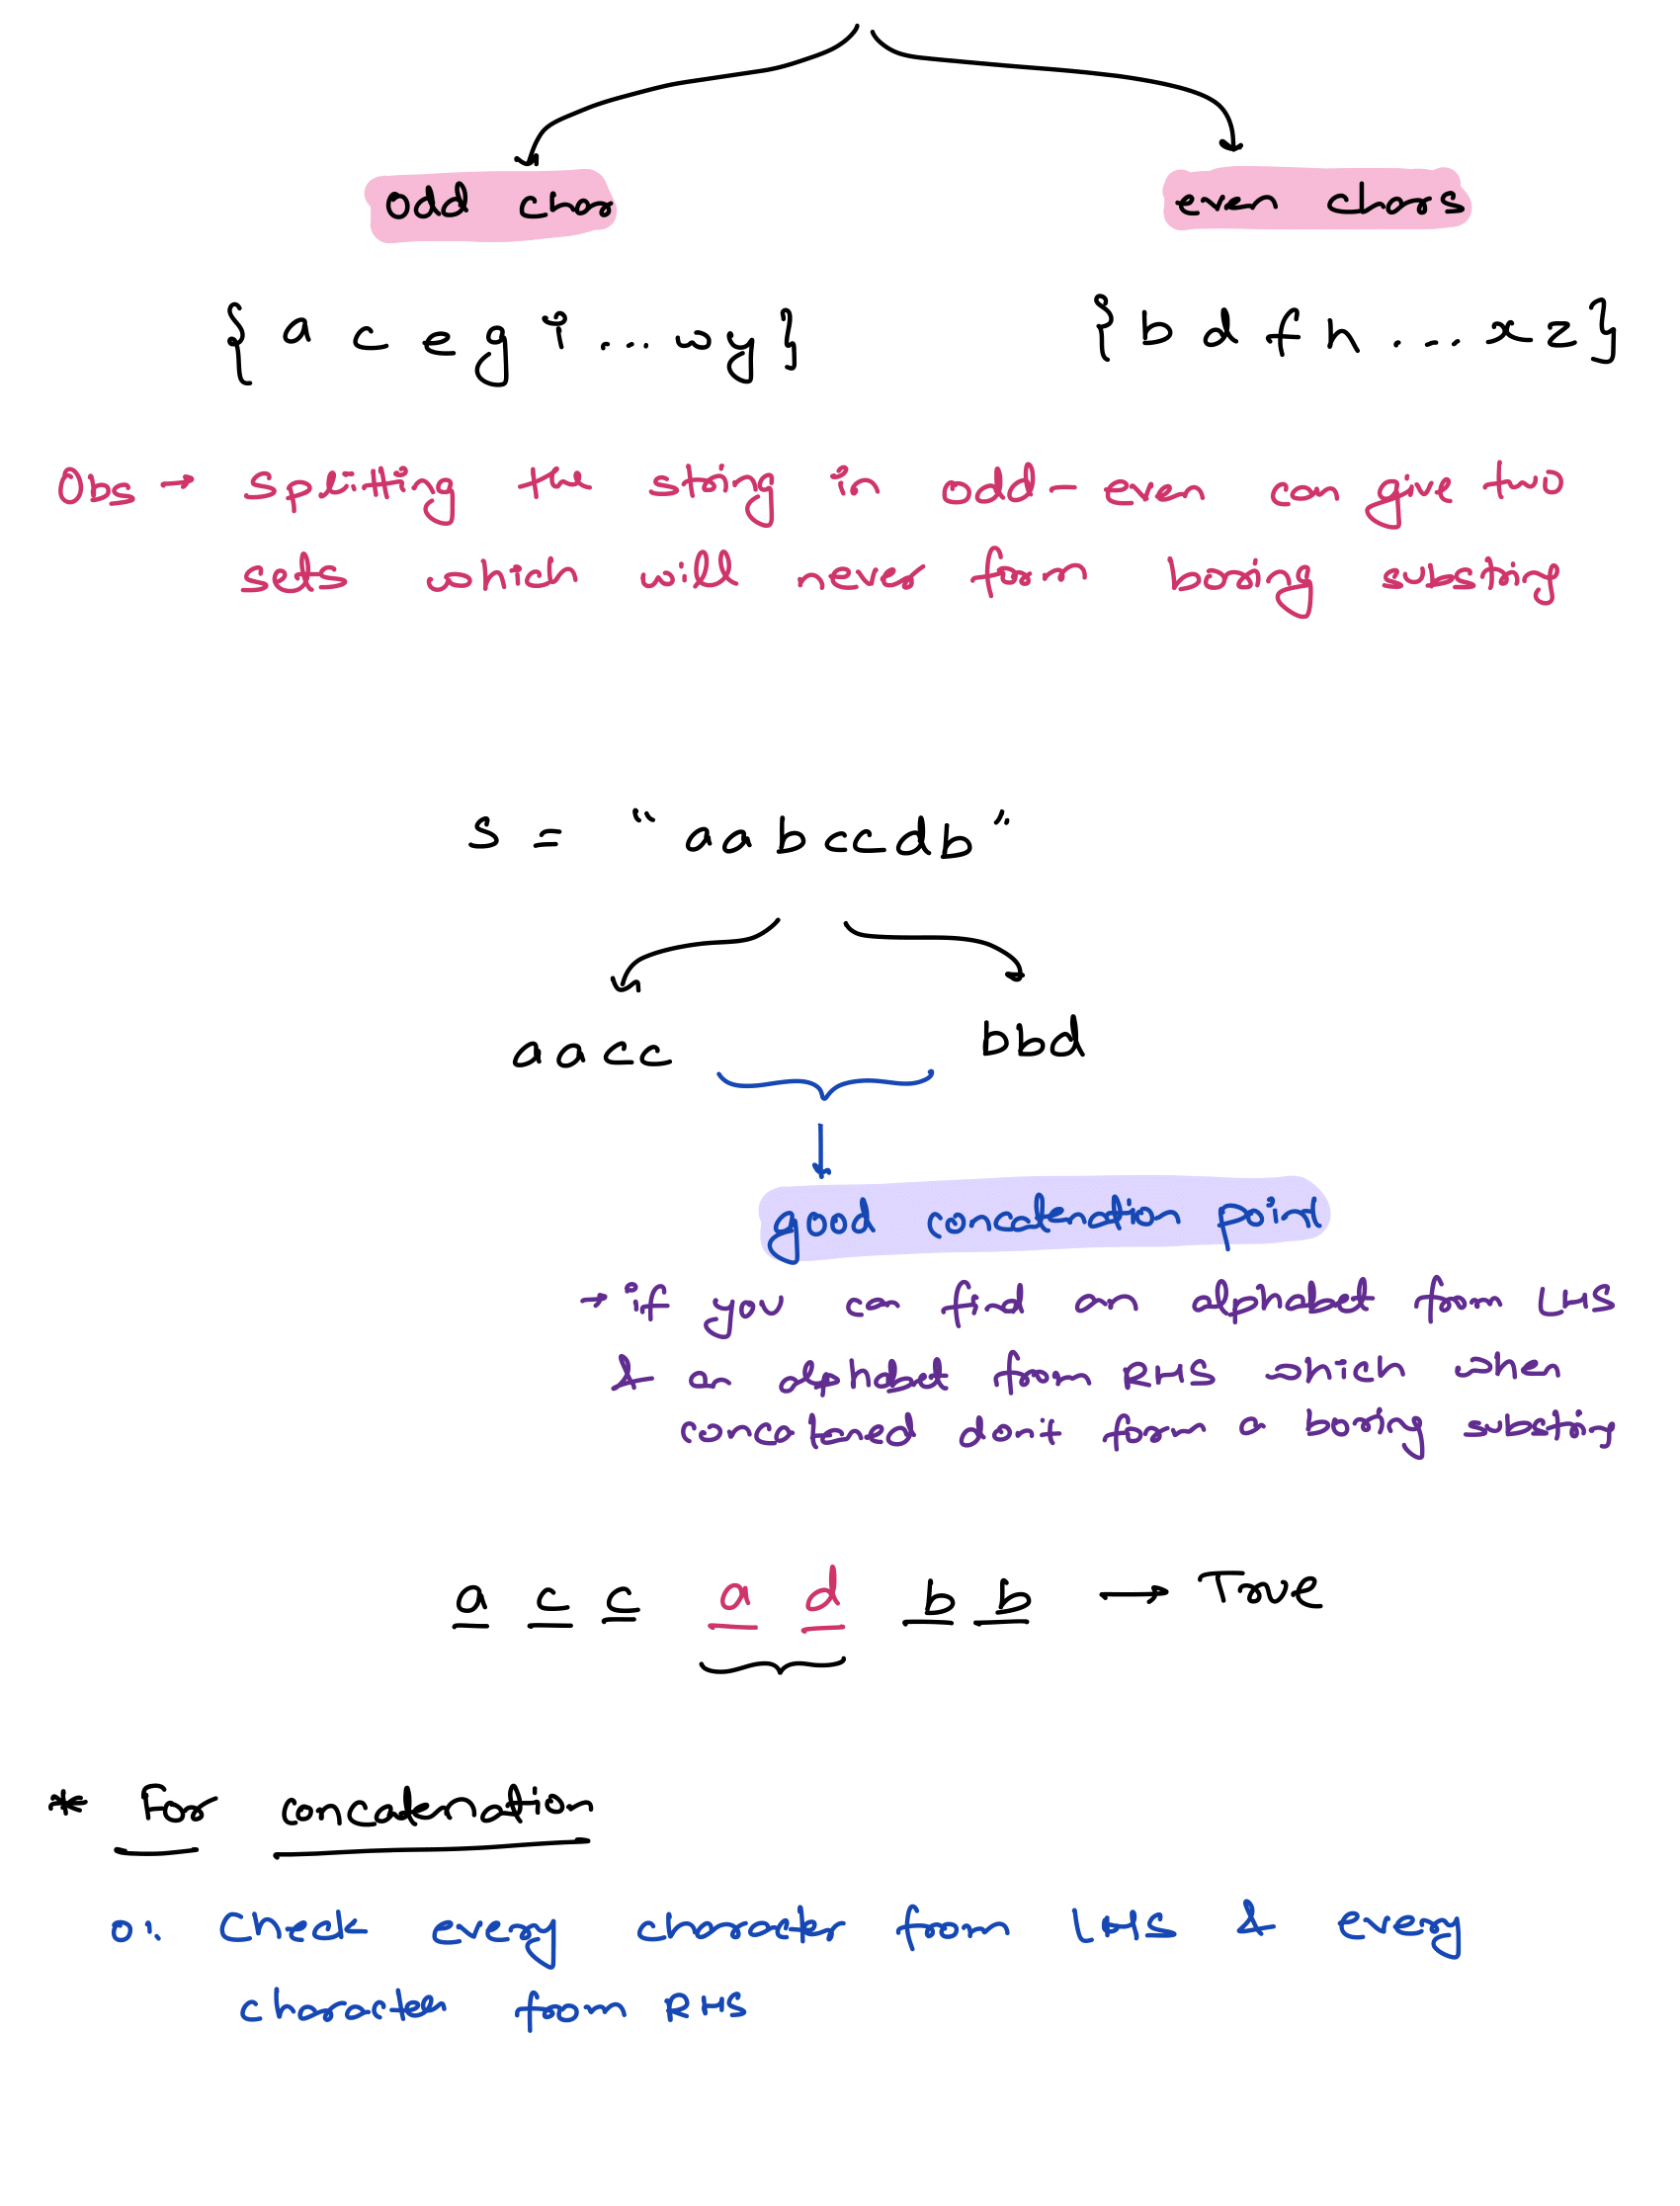 odd char even chars
{ a c e g i ... w y } { b d f h ... x z }
Obs → splitting the string in odd - even can give two
sets which will never form boring substring
s = " aabccdb "
aacc bbd
good concatenation point
→ if you can find an alphabet from LHS
& an alphabet from RHS which when
concataned don't form a boring substring
a c c a d b b → True
* For concatenation
0: Check every character from LHS & every
character from RHS